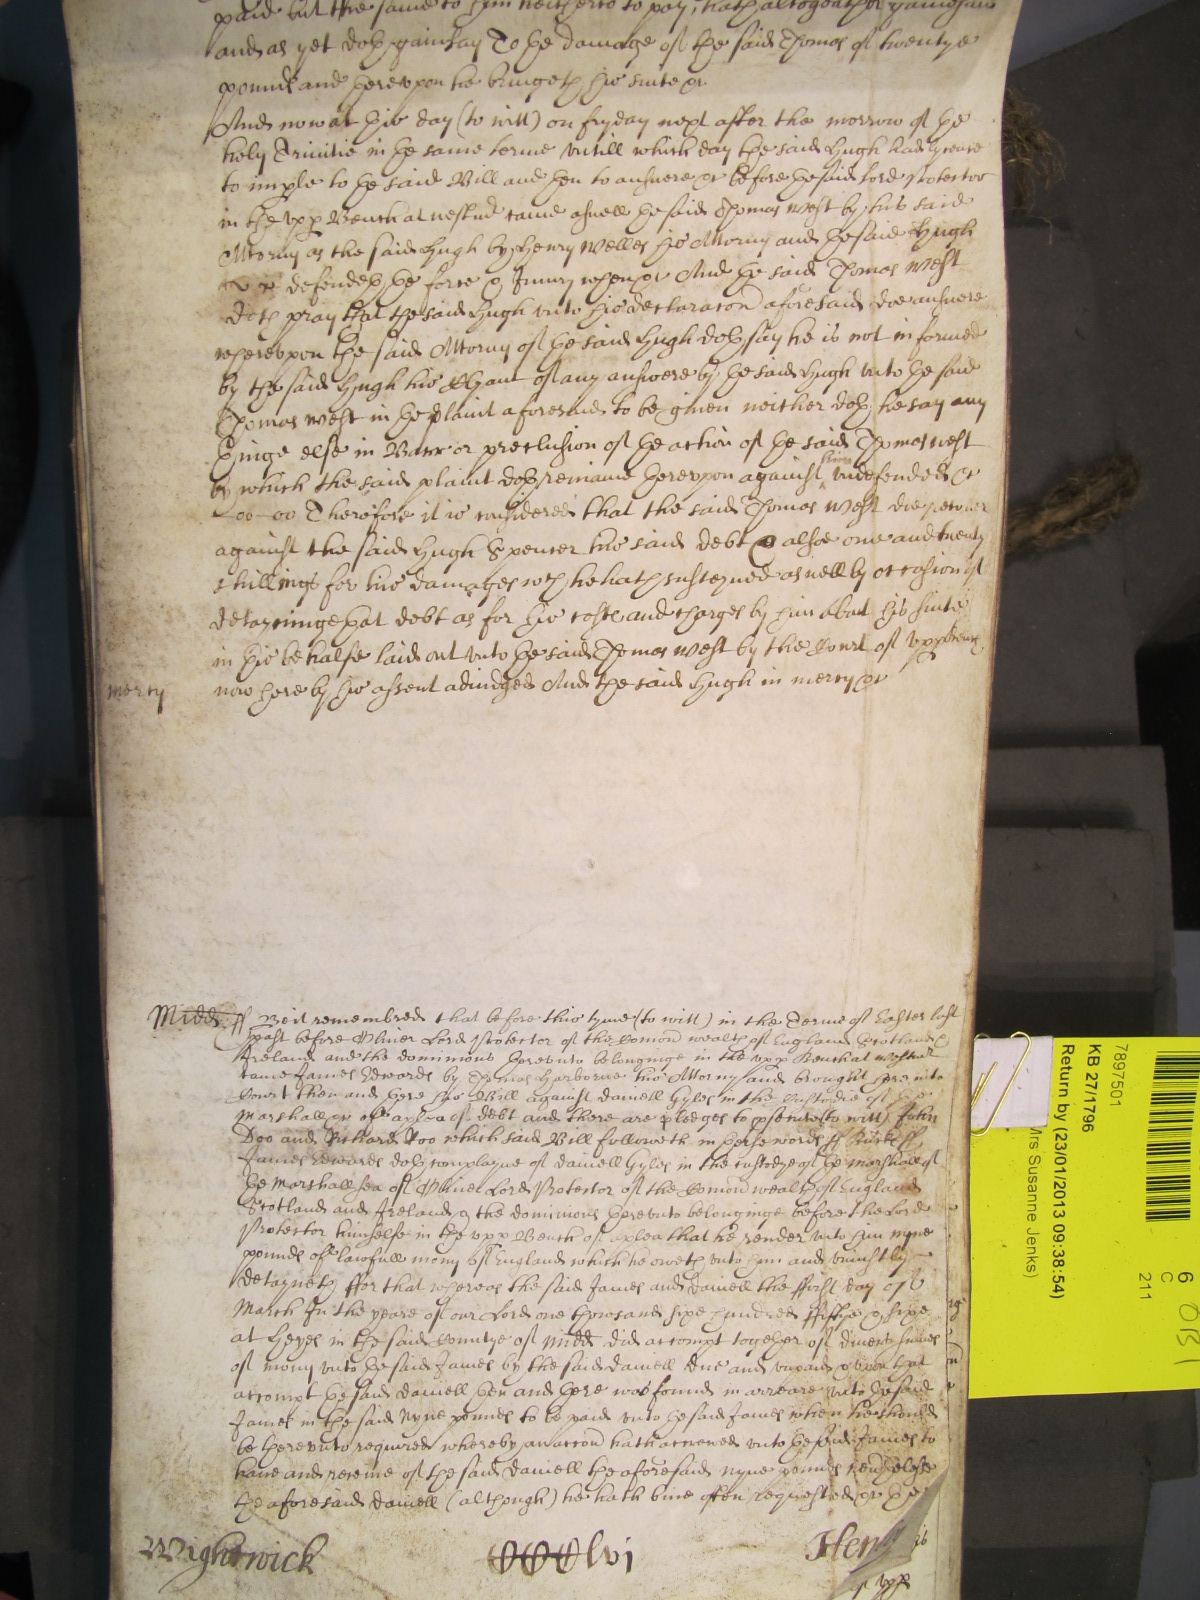 paid but the same to him hitherto to pay, hath altogeather gainsaid
and as yet doth gainsay To the damage of the said Thomas of twentye
pounds and herevpon he bringeth his suite &c
And now at this day (to witt) on fryday next after the morrow of the
holy Trinitie in the same terme vntill which day the said Hugh had lycence
to imple to the said Bill and then to answere &c before the said Lord Protector
in the vpp Bench at westm̄ came aswell the said Thomas West by his said
Attorny as the said Hugh by Henry Welles his Attorny and the said Hugh
defendeth the force & Iniury when &c And the said Thomas West
doth pray that the said Hugh vnto his declaracon aforesaid doe answere
wherevpon the said Attorny of the said Hugh doth say he is not informed
by the said Hugh his Clyant of any answere by the said Hugh vnto the said
Thomas West in the plaint aforesaid to be given neither doth he say any
thinge else in Barr or preclusion of the action of the said Thomas West
by which the said plaint doth remaine herevpon against him vndefended &c
Therefore it is considered that the said Thomas West doe recover
against the said Hugh Spencer his said debt & alsoe one and twenty
shillings for his damages wch he hath susteyned aswell by occasion of
detayninge that debt as for his costs and charges by him about his suite
in this behalfe laid out vnto the said Thomas West by the Court of vpp bench
mercy now here by his assent adiudged And the said Hugh in mercy &c
Midd ff Be it remembred that before this tyme (to witt) in the Terme of Easter last
past before Oliver Lord Protector of the Comon wealth of England Scotland &
Ireland and the dominions therevnto belonginge in the vpp Bench at westm̄
came James Edwards by Thomas Harborne his Attorny and brought here into
Court then and there his Bill against daniell Gyles in the Custodie of the
Marshall &c of a plea of debt and there are pledges to psecute (to witt) John
Doo and Richard Roo which said Bill followeth in these words ff Midd ff
James Edwards doth complayne of daniell Gyles in the custodye of the marshall of
the Marshallsea of Oliver Lord Protector of the Comon wealth of England
Scotland and Ireland & the dominions therevnto belonginge before the Lord
Protector himselfe in the vpp Bench of a plea that he render vnto him nyne
pounds of lawfull mony of England which he oweth vnto him and vniustly
detayneth ffor that whereas the said James and daniell the ffirst day of
March In the yeare of our Lord one thousand sixe hundred ffiftye & sixe
at Heyes in the said Countye of Midd did accompt together of divers summes
of mony vnto the said James by the said daniell due and vnpaid & vpon that
accompt the said daniell then and there was found in arreare vnto the said
James in the said Nyne pounds to be paid vnto the said James when he should
be therevnto required whereby an accon hath accrewed vnto the said James to
have and receive of the said daniell the aforesaid nyne pounds
the aforesaid daniell (although) he hath bine often requested &c
Wightwick
CCClvi
Hen
p vpp
7897501
KB 27/1796
Return by (23/01/2013 09:38:54)
Mrs Susanne Jenks)
6
C
211